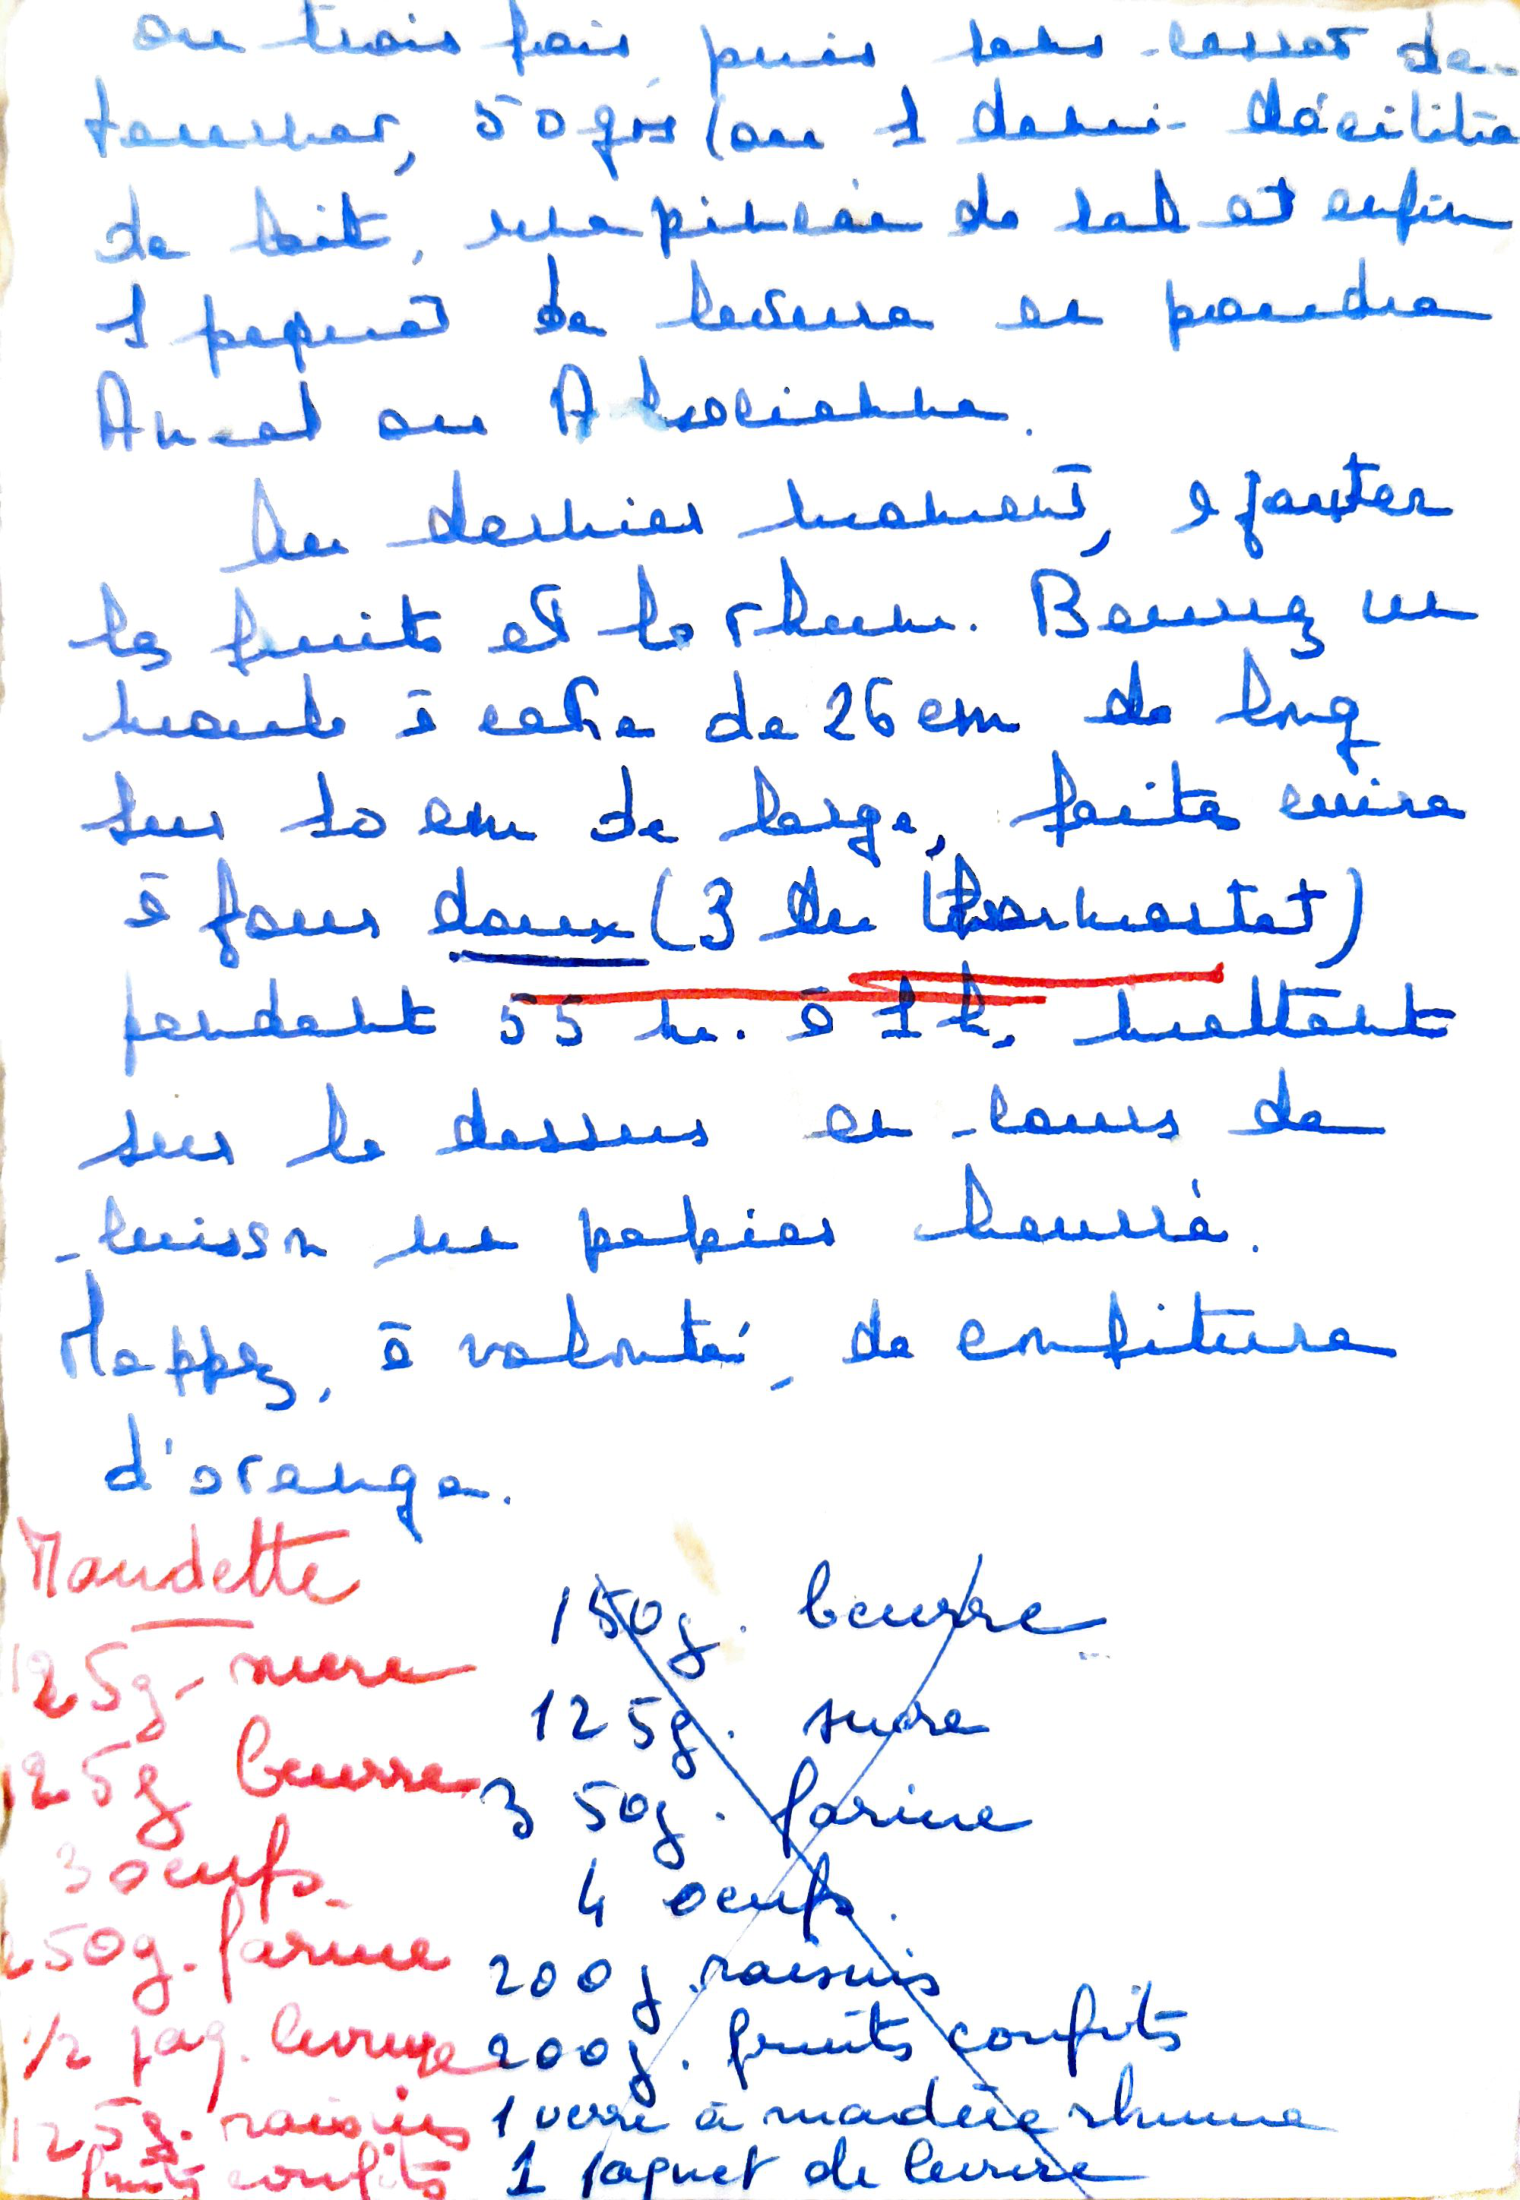 ou trois fois, puis sans cesser de
tourner, 50 grs (ou 1 demi-décilitre
de lait, une pincée de sel et enfin
1 paquet de levure en poudre
Ancel ou Alsacienne.
Au dernier moment, ajouter
les fruits et le rhum. Beurrez un
moule à cake de 26 cm de long
sur 10 cm de large, faites cuire
à four doux (3 du thermostat)
pendant 55 m. à 1 h, mettant
sur le dessus en cours de
cuisson un papier beurré.
Nappez, à volonté, de confiture
d'orange.
Maudette
125g sucre
125g beurre
3 oeufs
250g. farine
1/2 paq. levure
125g. raisins
fruits confits
150g. beurre
125g. sucre
350g. farine
4 oeufs.
200g. raisins
200g. fruits confits
1 verre à madère rhum
1 paquet de levure